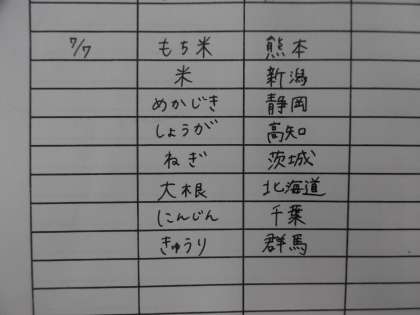 7/7 もち米 熊本
米 新潟
めかじき 静岡
しょうが 高知
ねぎ 茨城
大根 北海道
にんじん 千葉
きゅうり 群馬